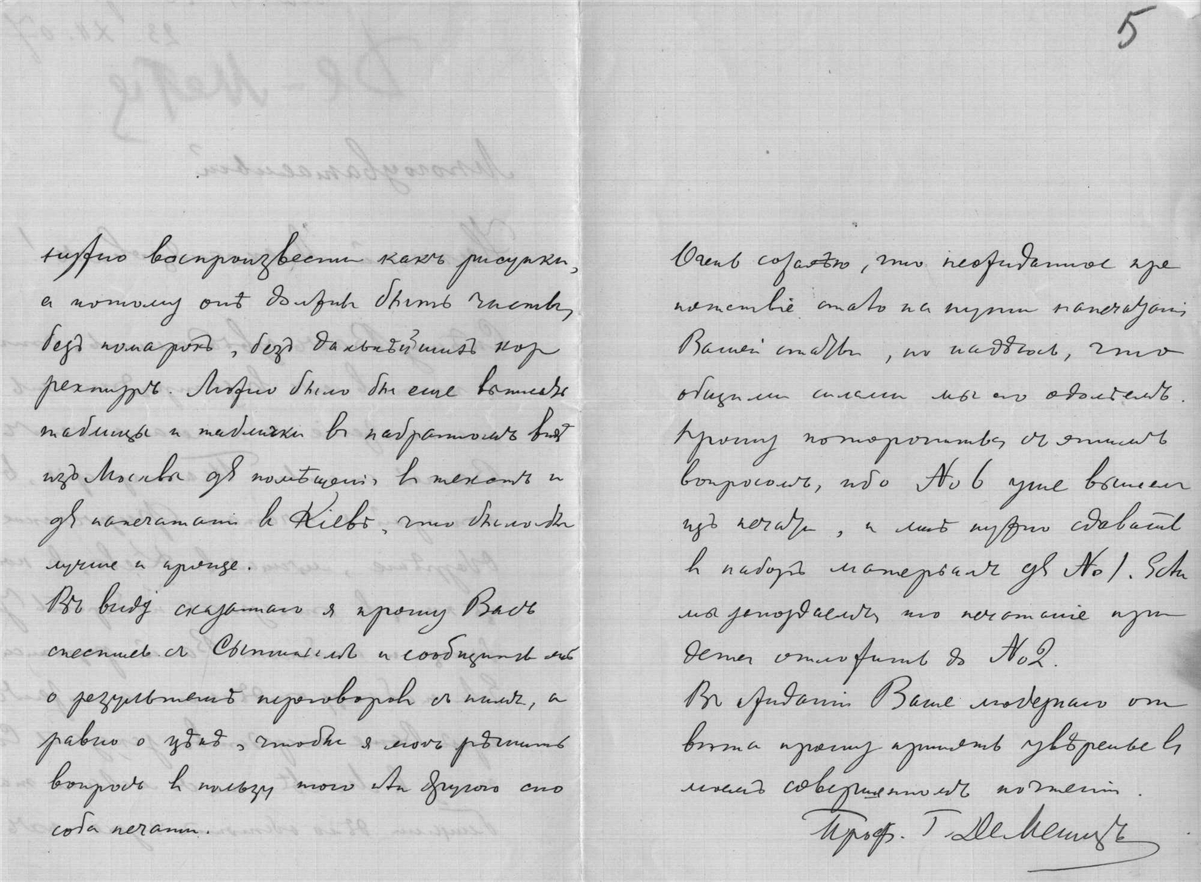 5
нужно воспроизвести какъ рисунки,
а потому онѣ должны быть чисты,
безъ помарокъ, безъ дальнѣйшихъ кор
ректуръ. Можно было бы еще выписать
таблицы и таблички въ набранномъ видѣ
изъ Москвы для помѣщенія въ текстъ и
для напечатанія въ Кіевѣ, что было бы
лучше и проще.
Въ виду сказаннаго я прошу Васъ
спестись съ Сытинымъ и сообщить мнѣ
о результатѣ переговоровъ съ нимъ, а
равно о цѣнѣ, чтобы я могъ рѣшить
вопросъ въ пользу того или другого спо
соба печати.
Очень сожалѣю, что неожиданное пре
пятствіе стало на пути напечатанія
Вашей статьи, но надѣюсь, что
общими силами мы его одолѣемъ.
Прошу поторопиться съ этимъ
вопросомъ, ибо No 6 уже вышелъ
изъ печати, и мнѣ нужно сдавать
въ наборъ матерьялъ для No 1. Если
мы запоздаемъ, то печатаніе при
дется отложить до No 2.
Въ ожиданіи Ваше любезнаго от
вѣта прошу принять увѣренье въ
моемъ совершенномъ почтеніи.
Проф. Г. Де Метцъ